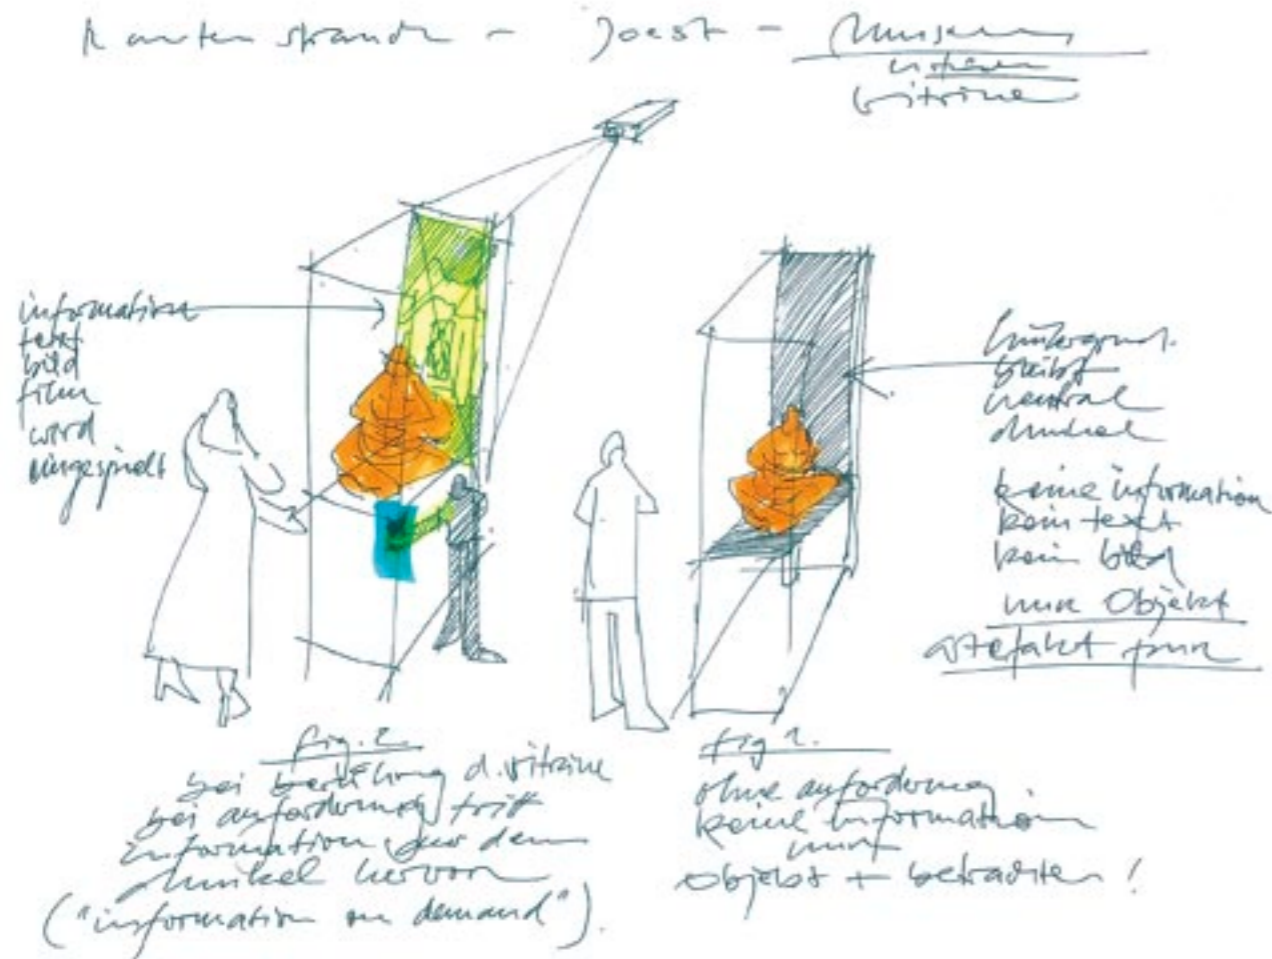 Rautenstrauch - Joest - Museum
vitrine
information
text
bild
film
wird
eingespielt
hintergrund
bleibt
neutral
dunkel
keine information
kein text
kein bild
nur Objekt
artefakt pur
fig. 2.
bei berührung d. vitrine
bei anforderung tritt
information aus dem
dunkel hervor
("information on demand").
fig 1.
ohne anforderung
keine information
nur
Objekt + betrachten!